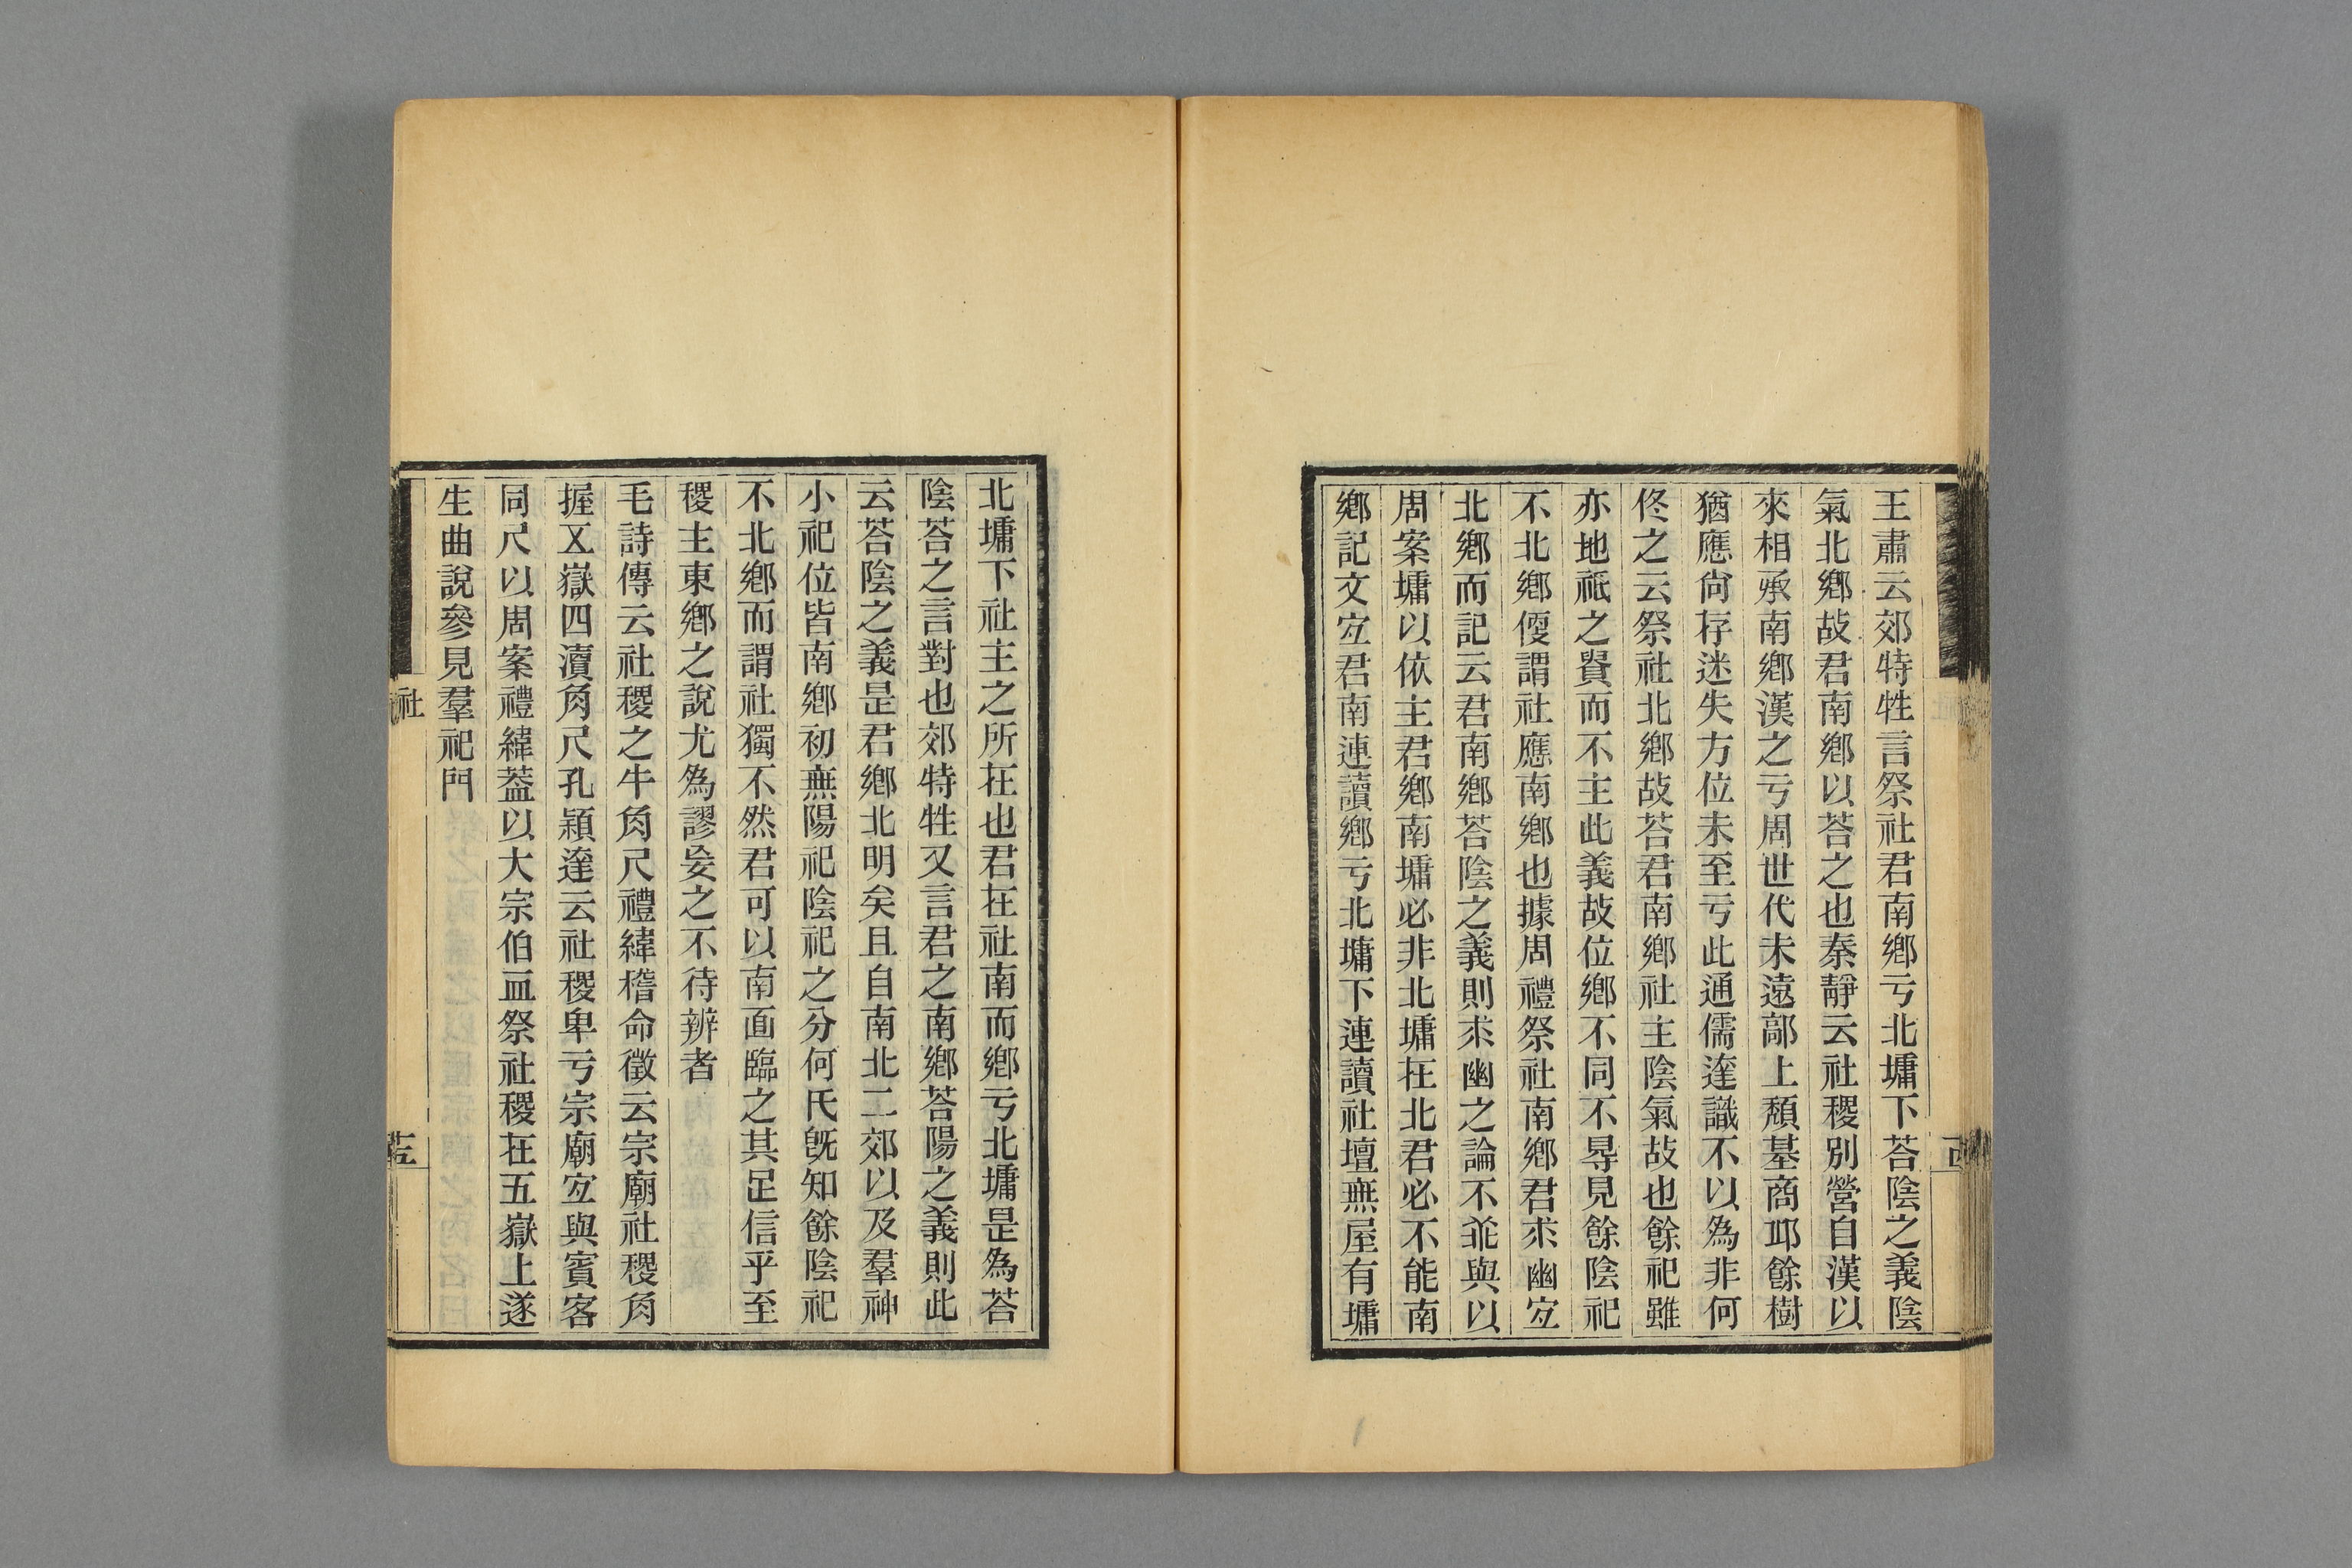 王肅云郊特牲言祭社君南鄉亏北墉下荅陰之義陰
氣北鄉故君南鄉以荅之也秦靜云社稷別營自漢以
來相承南鄉漢之亏周世代未遠鄗上頹基商丘餘樹
猶應尙存迷失方位未至亏此通儒達識不以為非何
佟之云祭社北鄉故荅君南鄉社主陰氣故也餘祀雖
亦地祇之貴而不主此義故位鄉不同不㝵見餘陰祀
不北鄉便謂社應南鄉也據周禮祭社南鄉君求幽宐
北鄉而記云君南鄉荅陰之義則求幽之論不乖與以
周案墉以依主君鄉南墉必非北墉在北君必不能南
鄉記文宐君南連讀鄉亏北墉下連讀社壇無屋有墉
北墉下社主之所在也君在社南而鄉亏北墉昰為荅
陰荅之言對也郊特牲又言君之南鄉荅陽之義則此
云荅陰之義昰君鄉北明矣且自南北二郊以及羣神
小祀位皆南鄉初無陽祀陰祀之分何氏旣知餘陰祀
不北鄉而謂社獨不然君可以南面臨之其足信乎至
稷主東鄉之說尤為謬妄之不待辨者
毛詩傳云社稷之牛角尺禮緯稽命徵云宗廟社稷角
握五嶽四瀆角尺孔穎達云社稷卑亏宗廟宐與賓客
同尺以周案禮緯葢以大宗伯血祭社稷在五嶽上遂
生曲說參見羣祀門
社
十五